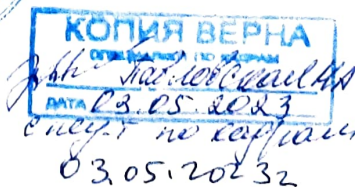 КОПИЯ ВЕРНА
СПЕЦИАЛИСТ ПО КАДРАМ
Павловская НА
ДАТА 03.05.2023
по кадрам
03.05.2023г